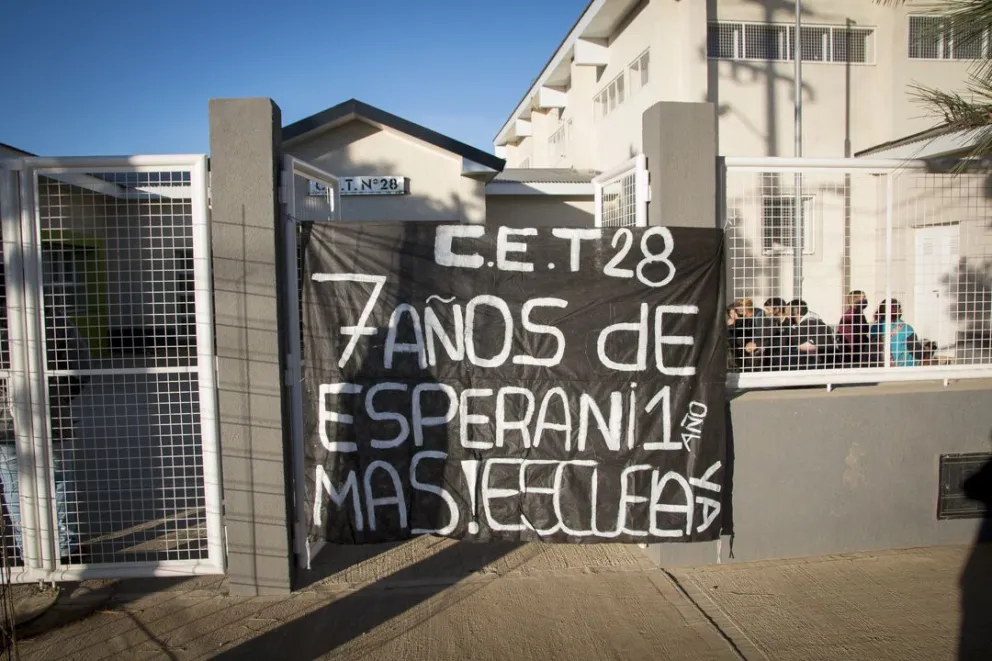 C.E.T. Nº28
C.E.T 28
7 AÑOS dE
ESPERA Ni 1 AÑO
MAS! ESCUELA YA